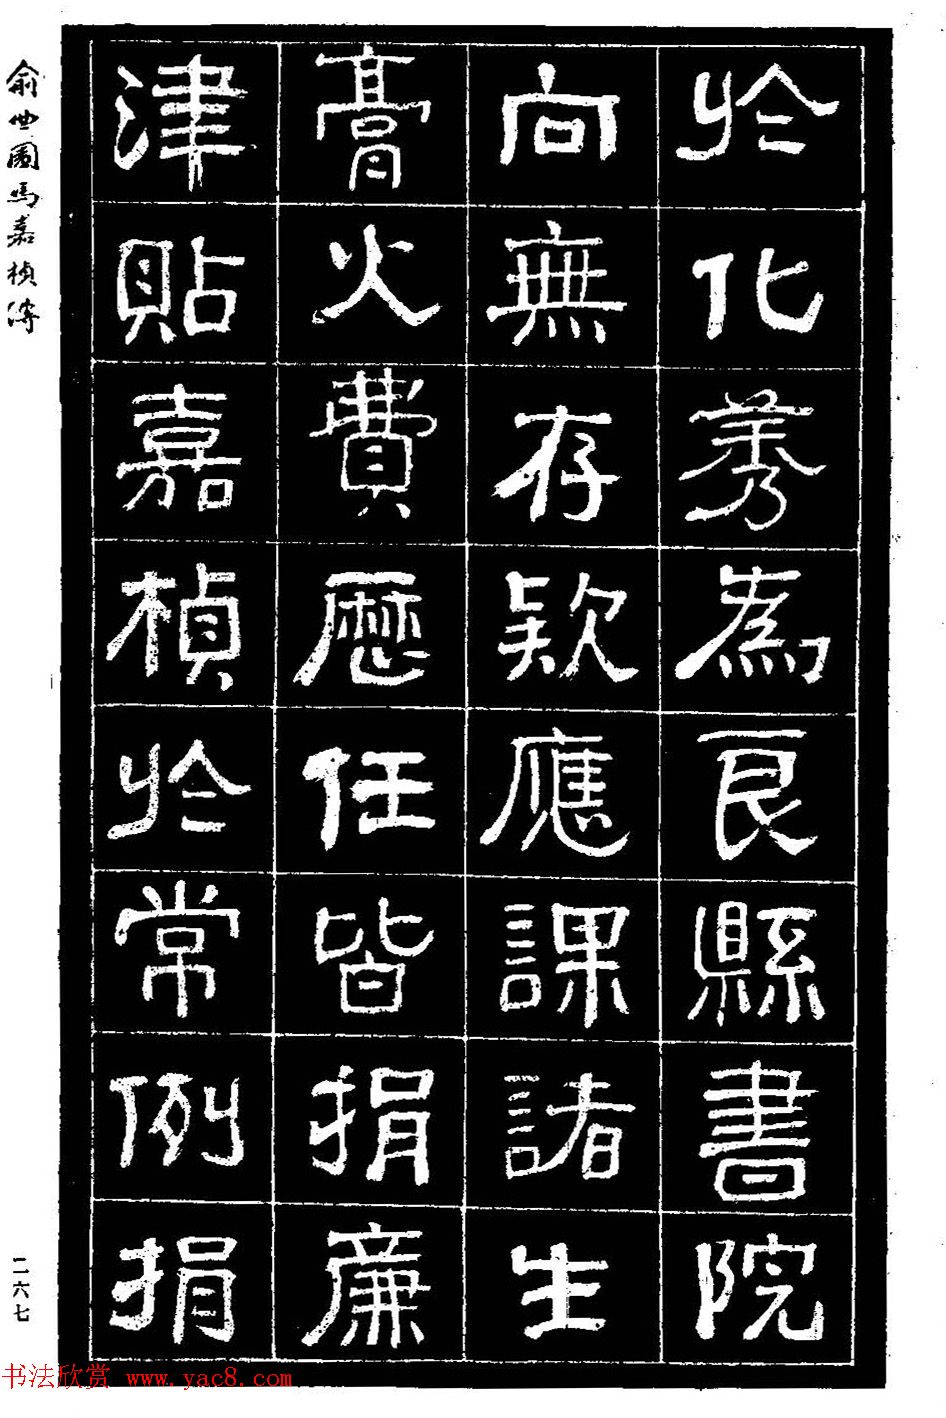 於化莠為良縣書院
向無存款應課諸生
膏火費歷任皆捐廉
津貼嘉楨於常例捐
俞世圖馬嘉楨傳
二六七
书法欣赏 www.yac8.com